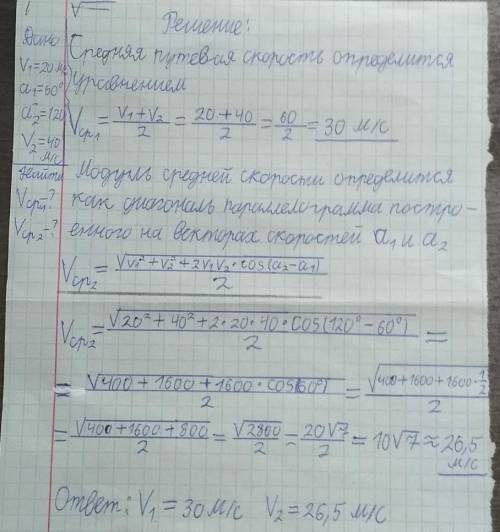 Решение:
Дано
V₁=20 м
a₁=60°
a₂=120
V₂=40 м/с
Найти
Vср₁-?
Vср₂-?
Средняя путевая скорость определится
уравнением
Vср₁ = (V₁+V₂)/2 = (20+40)/2 = 60/2 = 30 м/с
Модуль средней скорости определится
как диагональ параллелограмма постро-
енного на векторах скоростей a₁ и a₂
Vср₂ = √(V₁²+V₂²+2V₁V₂·cos(a₂-a₁))/2
Vср₂ = √(20²+40²+2·20·40·cos(120°-60°))/2 =
= √(400+1600+1600·cos(60°))/2 = √(400+1600+1600·1/2)/2
= √(400+1600+800)/2 = √2800/2 = 20√7/2 = 10√7 ≈ 26,5 м/с
Ответ: V₁=30 м/с V₂=26,5 м/с